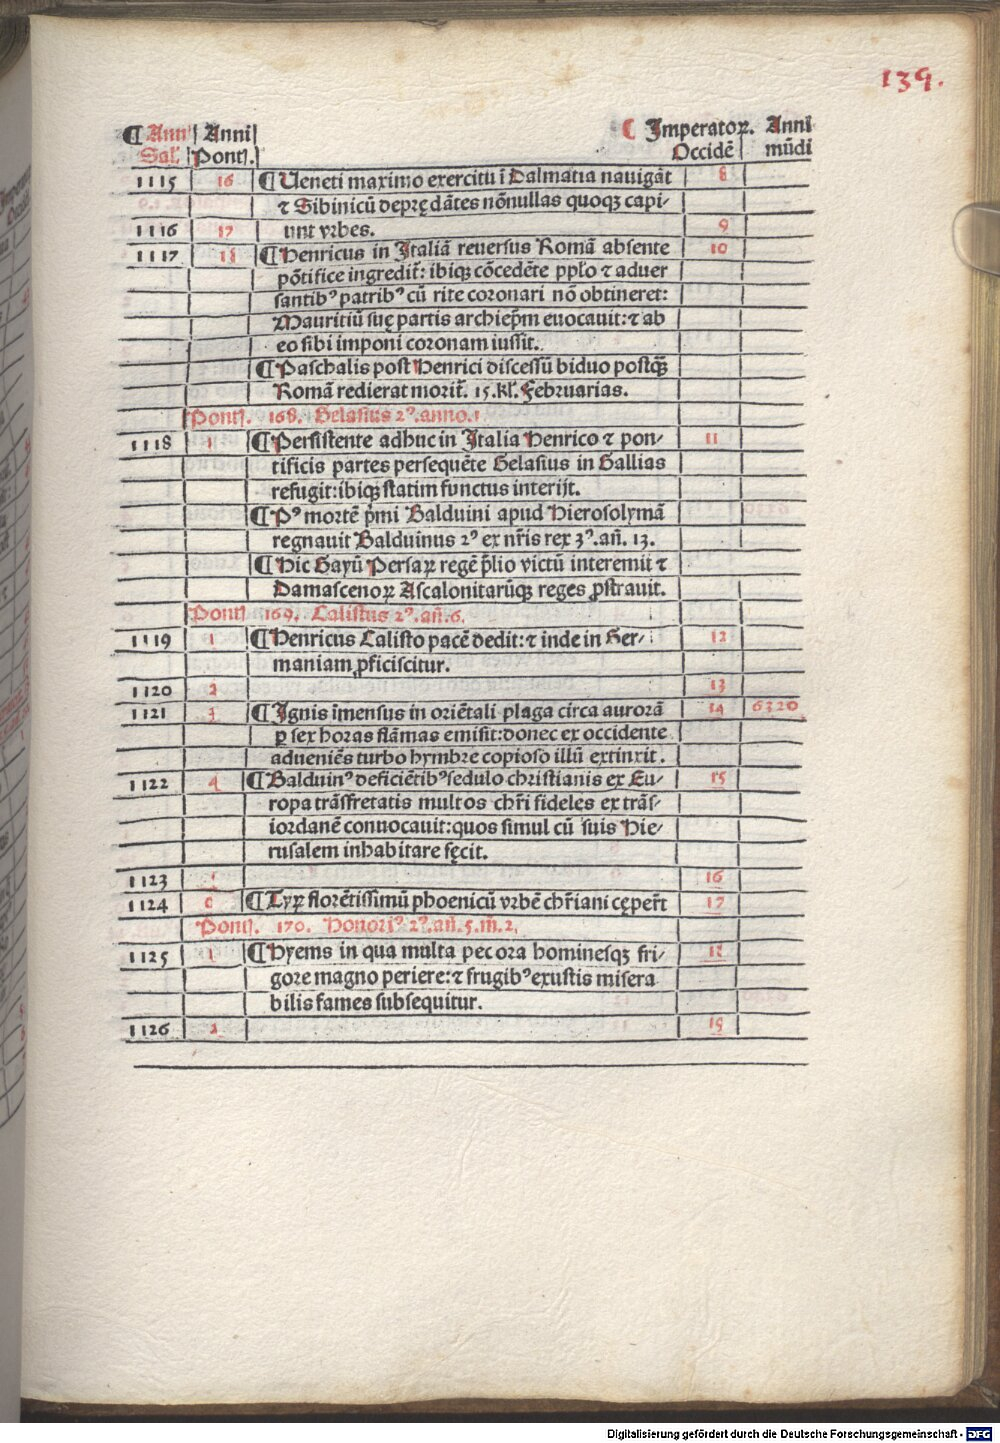 139.
¶ Ann Anni ¶ Imperatoꝝ. Anni
Sal. Pontĩ. Occidẽ mũdi
1115 16 ¶ Ueneti maximo exercitu ĩ Dalmatia nauigãt 8
⁊ Sibinicũ deprędãtes nõnullas quoqꝫ capi⸗
1116 17 unt vrbes. 9
1117 18 ¶ Henricus in Italiã reuersus Romã absente 10
põtifice ingredit̃: ibiqꝫ cõcedẽte pplo ⁊ aduer
santibꝰ patribꝰ cũ rite coronari nõ obtineret:
Mauritiũ suę partis archiep̃m euocauit: ⁊ ab
eo sibi imponi coronam iussit.
¶ Paschalis post Henrici discessũ biduo postqꝫ̃
Romã redierat morit̃. 15. kl̃. Februarias.
Pontĩ. 168. Gelasius 2ꝰ. anno. 1
1118 1 ¶ Persistente adhuc in Italia Henrico ⁊ pon⸗ 11
tificis partes persequẽte Gelasius in Gallias
refugit: ibiqꝫ statim functus interijt.
¶ Pꝰ mortẽ p̃mi Balduini apud Hierosolymã
regnauit Balduinus 2ꝰ ex nr̃is rex 3ꝰ. añ. 13.
¶ Hic Gayũ Persaꝝ regẽ p̃lio victũ interemit ⁊
Damascenoꝝ Ascalonitarũqꝫ reges ꝓstrauit.
Pontĩ 169. Calistus 2ꝰ. añ. 6.
1119 1 ¶ Henricus Calisto pacẽ dedit: ⁊ inde in Ger⸗ 12
maniam ꝓficiscitur.
1120 2 13
1121 3 ¶ Ignis ĩmensus in oriẽtali plaga circa aurorã 14 6320
ꝑ sex horas flãmas emisit: donec ex occidente
adueniẽs turbo hymbre copioso illũ extinxit.
1122 4 ¶ Balduinꝰ deficiẽtibꝰ sedulo christianis ex Eu⸗ 15
ropa trãsfretatis multos chr̃i fideles ex trãs⸗
iordanẽ conuocauit: quos simul cũ suis Hie⸗
rusalem inhabitare fęcit.
1123 16
1124 6 ¶ Tyꝝ florẽtissimũ phoenicũ vrbẽ chr̃iani cęper̃t 17
Pontĩ. 170. Honoriꝰ 2ꝰ. añ. 5. m̃. 2.
1125 1 ¶ Hyems in qua multa pecora hominesqꝫ fri⸗ 18
gore magno periere: ⁊ frugibꝰ exustis misera
bilis fames subsequitur.
1126 2 19
Digitalisierung gefördert durch die Deutsche Forschungsgemeinschaft - DFG